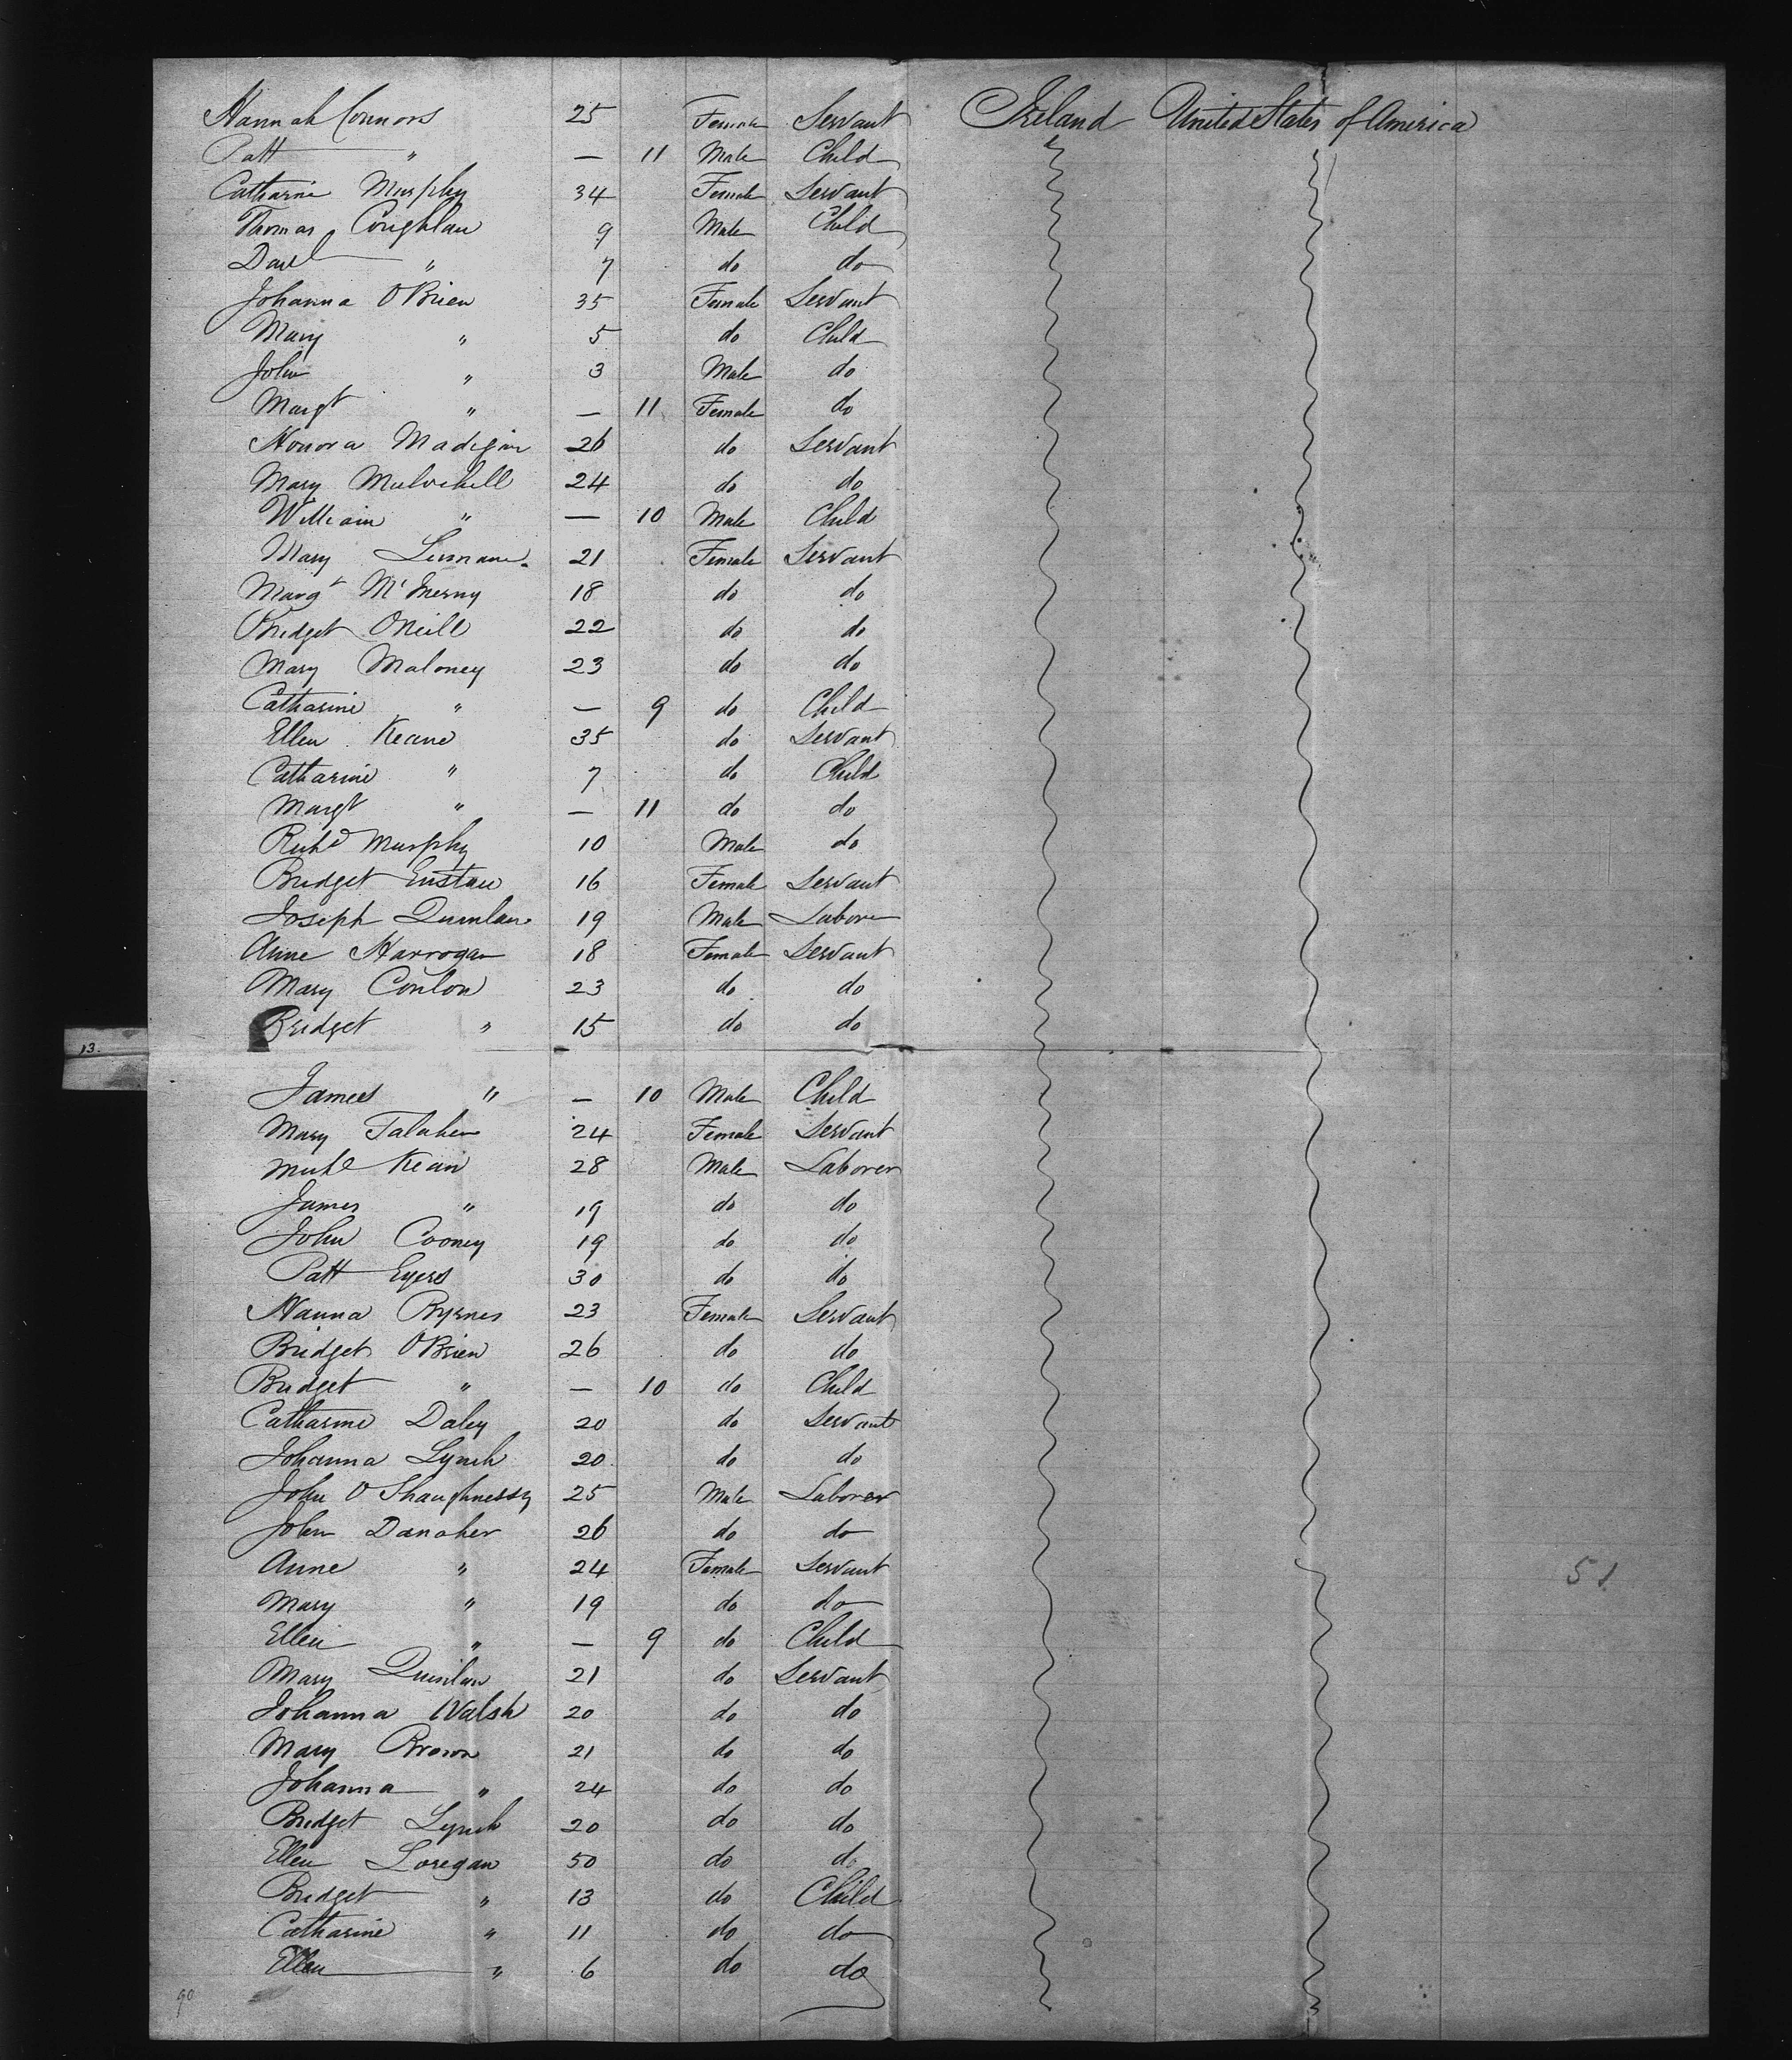 Hannah Connors 25 Female Servant Ireland United States of America
Patt " — 11 Male Child
Catharine Murphy 34 Female Servant
Thomas Coughlan 9 Male Child
Danl " 7 do do
Johanna O'Brien 35 Female Servant
Mary " 5 do Child
John " 3 Male do
Margt " — 11 Female do
Honora Madigan 26 do Servant
Mary Mulvihill 24 do do
William " — 10 Male Child
Mary 21 Female Servant
Margt McInerny 18 do do
Bridget ONeill 22 do do
Mary Maloney 23 do do
Catharine " — 9 do Child
Ellen Keane 35 do Servant
Catharine " 7 do Child
Margt " — 11 do do
Richd Murphy 10 Male do
Bridget Eustace 16 Female Servant
Joseph Quinlan 19 Male Laborer
Anne Harrogan 18 Female Servant
Mary Conlon 23 do do
Bridget " 15 do do
13.
James " — 10 Male Child
Mary 24 Female Servant
Michl Kean 28 Male Laborer
James " 19 do do
John Cooney 19 do do
Patt Eyers 30 do do
Hanna Byrnes 23 Female Servant
Bridget O'Brien 26 do do
Bridget " — 10 do Child
Catharine Daley 20 do Servant
Johanna Lynch 20 do do
John O'Shaughnessy 25 Male Laborer
John Danaher 26 do do
Anne " 24 Female Servant
51
Mary " 19 do do
Ellen " — 9 do Child
Mary Quinlan 21 do Servant
Johanna Walsh 20 do do
Mary Brown 21 do do
Johanna " 24 do do
Bridget Lynch 20 do do
Ellen Loregan 50 do do
Bridget " 13 do Child
Catharine " 11 do do
Ellen " 6 do do
90